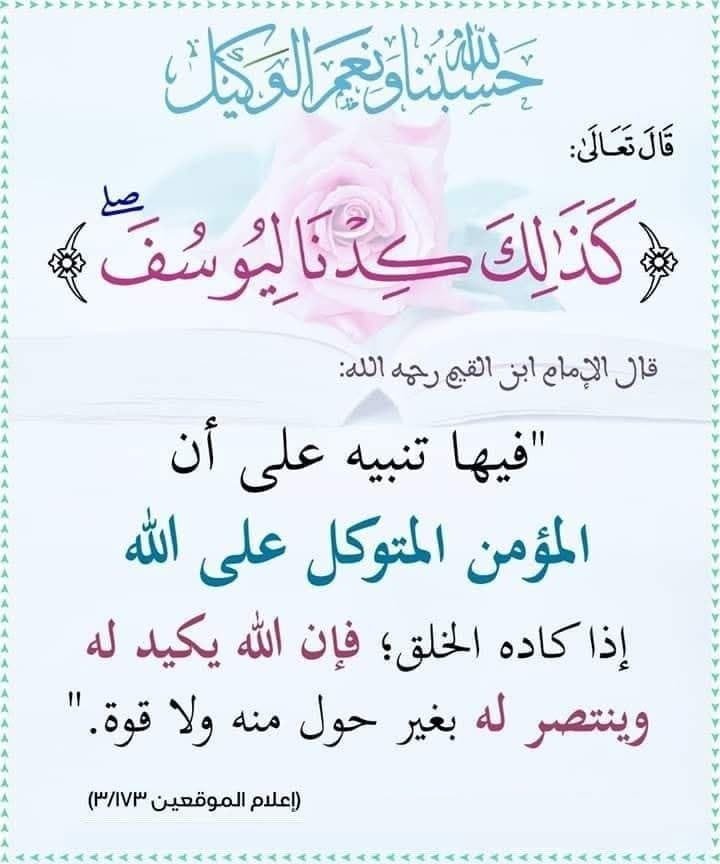 حسبنا الله ونعم الوكيل
قَالَ تَعَالَىٰ:
﴿كَذَٰلِكَ كِدْنَا لِيُوسُفَ ۖ﴾
قال الإمام ابن القيم رحمه الله:
"فيها تنبيه على أن
المؤمن المتوكل على الله
إذا كاده الخلق؛ فإن الله يكيد له
وينتصر له بغير حول منه ولا قوة."
(إعلام الموقعين ٣/١٧٣)